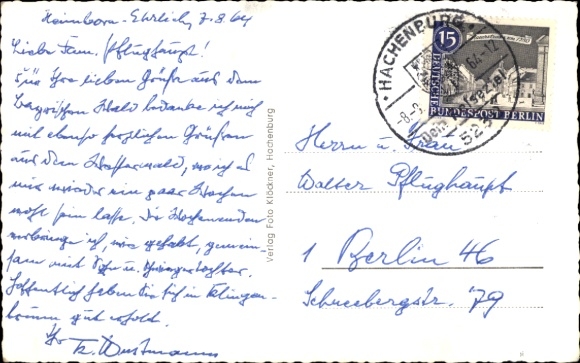 Heimborn-Ehrlich, 7.8.64
Liebe Fam. Pflughaupt!
Für Ihre lieben Grüße aus dem
Bayrischen Wald bedanke ich mich
mit ebenso herzlichen Grüßen
aus dem Westerwald, wo ich es
mir wieder ein paar Wochen
wohl sein lasse. Die Wochenenden
verbringe ich, wie gehabt, gemein-
sam mit Sohn u. Schwiegertochter.
Hoffentlich haben Sie sich in Klingen-
brunn gut erholt.
Ihr
Verlag Foto Klöckner, Hachenburg
HACHENBURG
15
DEUTSCHE
BUNDESPOST BERLIN
Herrn u. Frau
Walter Pflughaupt
1 Berlin 46
Schneebergstr. 79